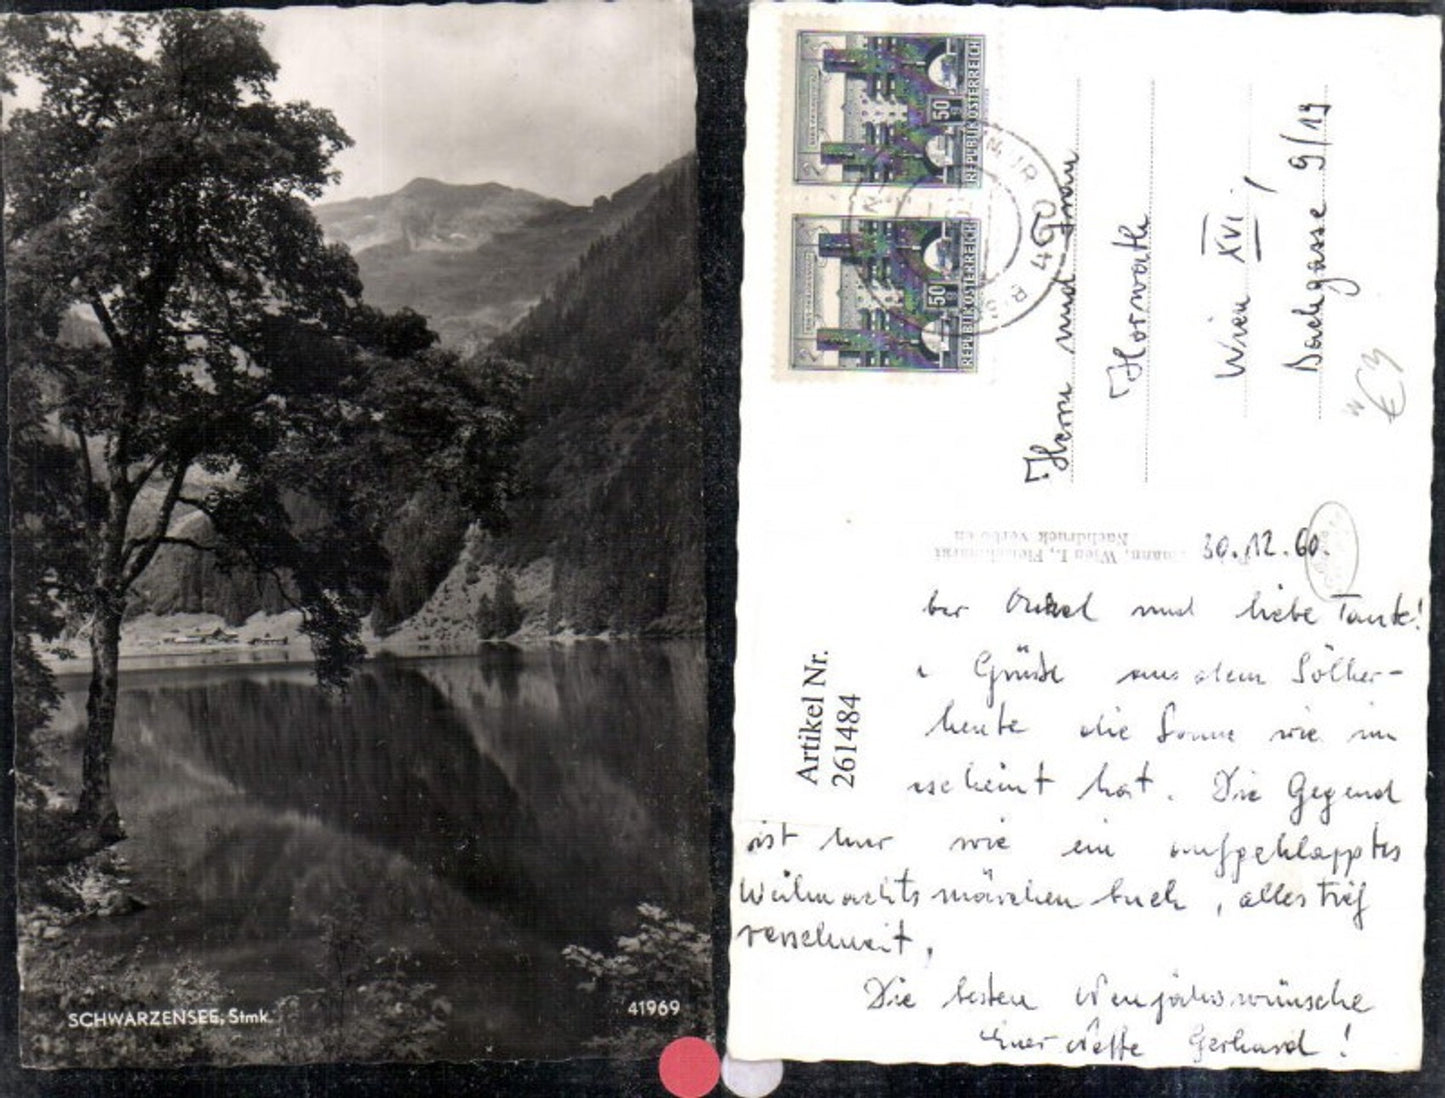 SCHWARZENSEE, Stmk.
41969
50
REPUBLIK ÖSTERREICH
50
REPUBLIK ÖSTERREICH
MUR
Herrn und Frau
Horwath
Wien XVI,
Dachgasse 9/19
€ 4
Wien I., Fleischmarkt
Nachdruck verboten
30.12.60.
Artikel Nr.
261484
ber Onkel und liebe Tante!
Grüße aus dem Sölker-
heute die Sonne wie im
scheint hat. Die Gegend
ist hier wie ein aufgeklapptes
Weihnachtsmärchenbuch, alles tief
verschneit.
Die besten Neujahrswünsche
Euer Neffe Gerhard!